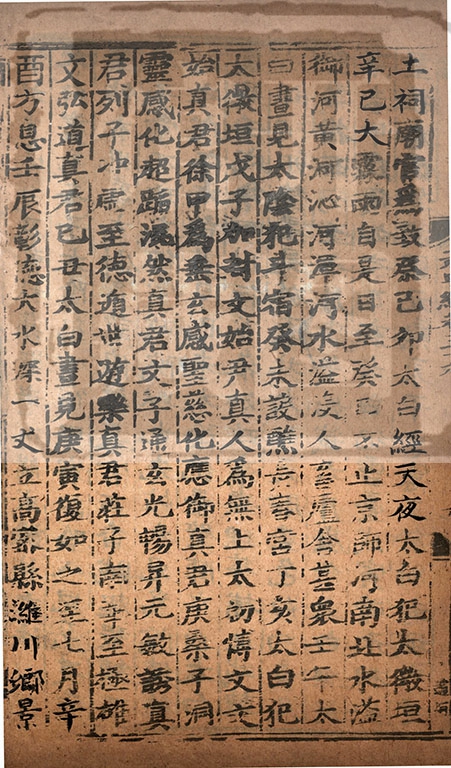 土祠廟官爲致祭己卯太白經天夜太白犯太微垣
辛巳大霖雨自是日至癸酉不止京師河南北水溢
御河黃河沁河渾河水溢沒人畜廬舍甚衆壬午太
白晝見太陰犯斗宿癸未設醮長春宮丁亥太白犯
太微垣戊子加封文始尹真人爲無上太初博文文
始真君徐甲爲垂玄感聖慈化應御真君庚桑子洞
靈感化超蹈混然真君文子通玄光暢昇元敏誘真
君列子冲虛至德遁世遊樂真君莊子南華至極雄
文弘道真君己丑太白晝見庚寅復如之至七月辛
酉方息壬辰彰德大水深一丈立高麗縣濰川鄉景